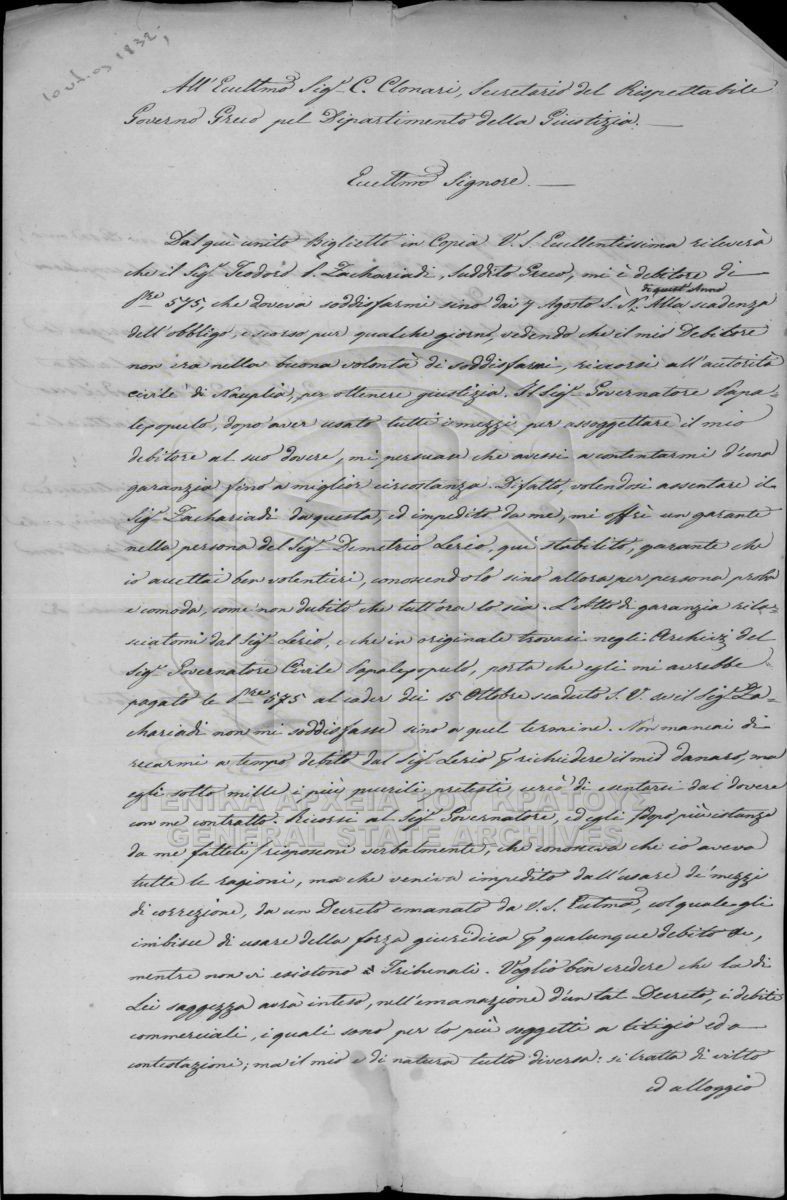 1832,
All' Eccellmo Sigr. C. Clonari, Secretario del Rispettabile
Governo Greco pel Dipartimento della Giustizia. —
Eccellmo Signore. —
Dal quì unito Biglietto in Copia V. S. Eccellentissima rileverà
che il Sigr. Teodoro P. Zachariadi, Suddito Greco, mi è debitore di
575, che doveva soddisfarmi sino dai 7 Agosto S. N. di quest'Anno Alla scadenza
dell'obbligo, e scorso pur qualche giorno, vedendo che il mio Debitore
non era nella buona volontà di soddisfarmi, ricorsi all'autorità
civile di Nauplia, per ottenere giustizia. Il Sigr. Governatore Papa-
lepopulo, dopo aver usato tutti i mezzi per assoggettare il mio
debitore al suo dovere, mi persuase che avessi a contentarmi d'una
garanzia fino a miglior circostanza. Difatto, volendosi assentare il
Sigr. Zachariadi da questa, ed impedito da me, mi offrì un garante
nella persona del Sigr. Demetrio Lerio, quì stabilito, garante che
io accettai ben volentieri, conoscendolo sino allora per persona proba
e comoda, come non dubito che tutt'ora lo sia. L'Atto di garanzia rila-
sciatomi dal Sigr. Lerio, e che in originale trovasi negli Archivj del
Sigr. Governatore Civile Papalepopulo, porta che egli mi avrebbe
pagato le 575 al cader dei 15 Ottobre scaduto S. V. se il Sigr. Za-
chariadi non mi soddisfasse sino a quel termine. Non mancai di
recarmi a tempo debito dal Sigr. Lerio richiedere il mio danaro, ma
egli sotto mille i più puerili pretesti cercò di esentarsi dal dovere
con me contratto. Ricorsi al Sigr. Governatore, ed egli dopo più istanze
da me fatteli risposemi verbalmente, che conosceva che io aveva
tutte le ragioni, ma che veniva impedito dall'usare de' mezzi
di correzione, da un Decreto emanato da V. S. col quale gli
inibisce di usare della forza giuridica qualunque debito
mentre non vi esistono i Tribunali. Voglio ben credere che la di
Lei saggezza avrà inteso, nell'emanazione d'un tal Decreto, i debiti
commerciali, i quali sono per lo più soggetti a litigio ed a
contestazioni; ma il mio è di natura tutto diversa: si tratta di vitto
ed alloggio
ΓΕΝΙΚΑ ΑΡΧΕΙΑ ΤΟΥ ΚΡΑΤΟΥΣ
GENERAL STATE ARCHIVES